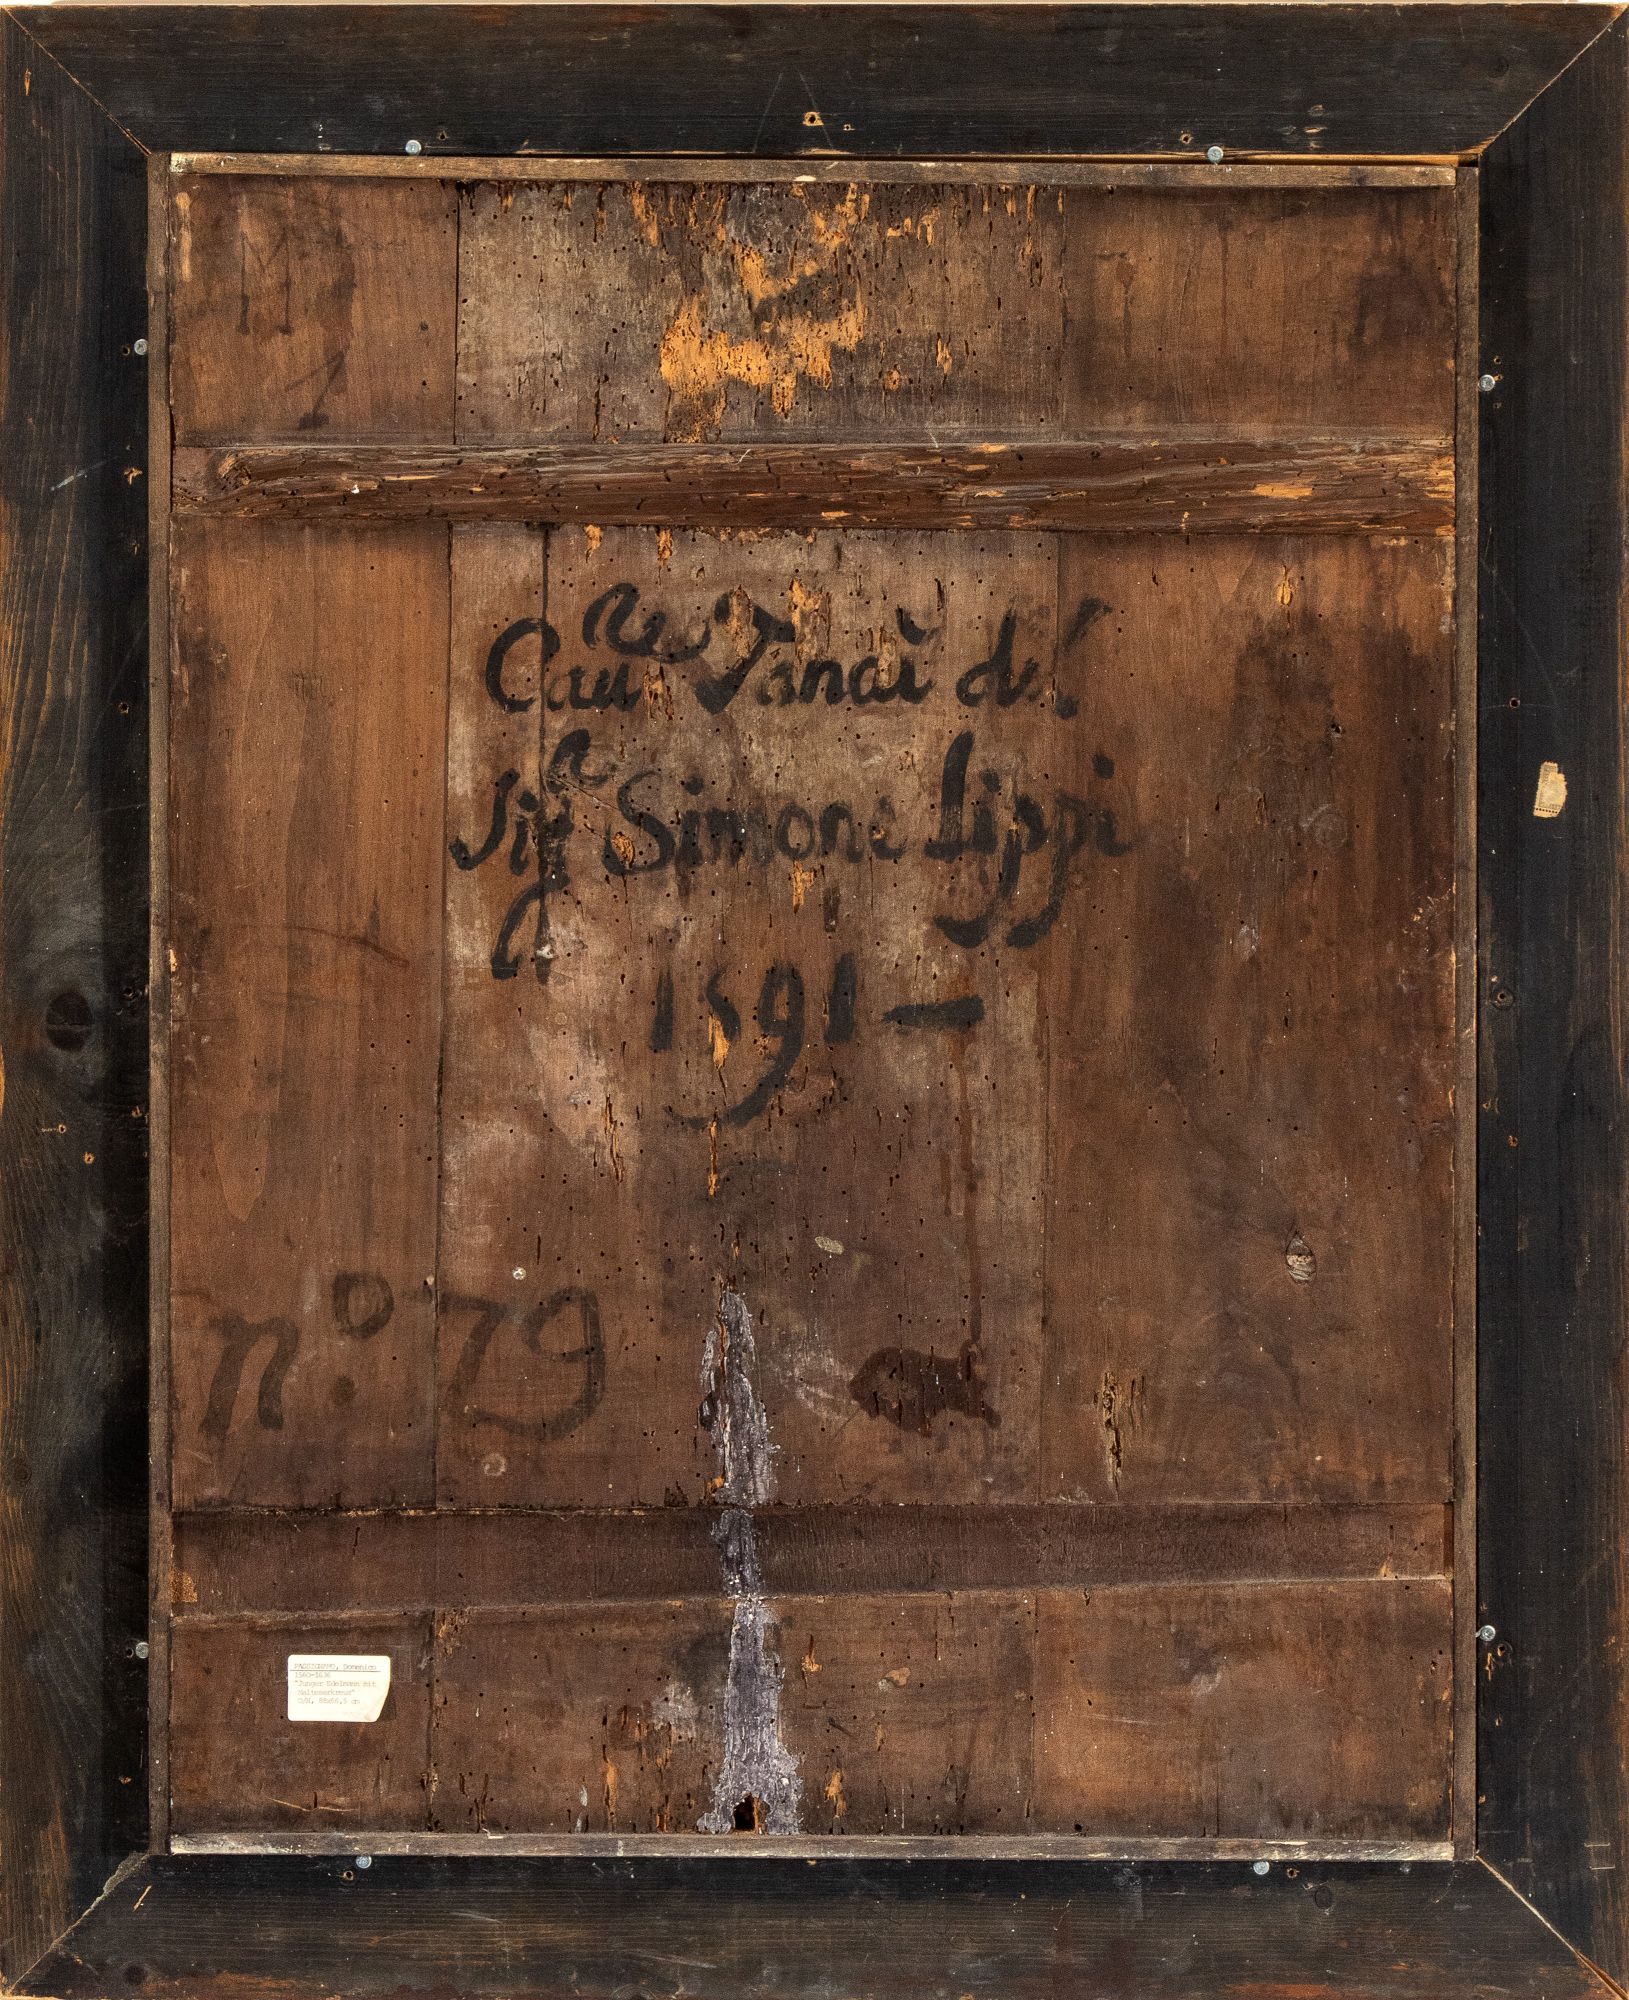 Cau.re Tanai del
Sig.r Simone Lippi
1591 —
n.o 79
PASSIGNANO, Domenico
1560-1636
"Junger Edelmann mit
Malteserkreuz"
Ö/H, 88x66,5 cm